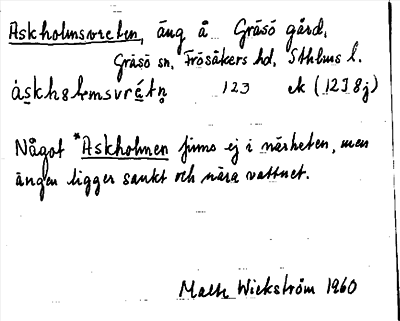 Askholmsvreten, äng å Gräsö gård,
Gräsö sn, Frösåkers hd, Sthlms l.
123 ek (12I8j)
Något *Askholmen finns ej i närheten, men
ängen ligger sankt och nära vattnet.
Wickström 1960